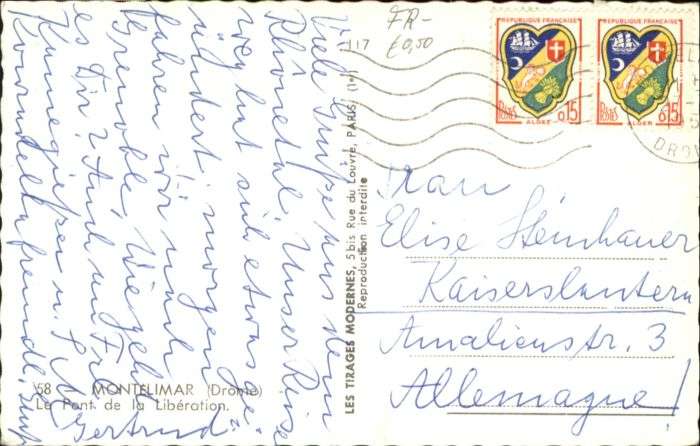 Viele Grüße aus dem
Rhônetal. Unser Reise
weg hat sich etwas ge
ändert, morgen
fahren wir nach
Grenoble. Wie geht
es Dir? Auch u. Frl.
Kannegießer u.
Gertrud
FR-
€0,50
117
REPUBLIQUE FRANÇAISE
POSTES 0,15
ALGER
REPUBLIQUE FRANÇAISE
POSTES 0,15
ALGER
LES TIRAGES MODERNES, 5 bis Rue du Louvre, PARIS. (1er)
Reproduction interdite
Frau
Elise Steinhauer
Kaiserslautern
Amalienstr. 3
Allemagne!
58 MONTELIMAR (Drôme)
Le Pont de la Libération.